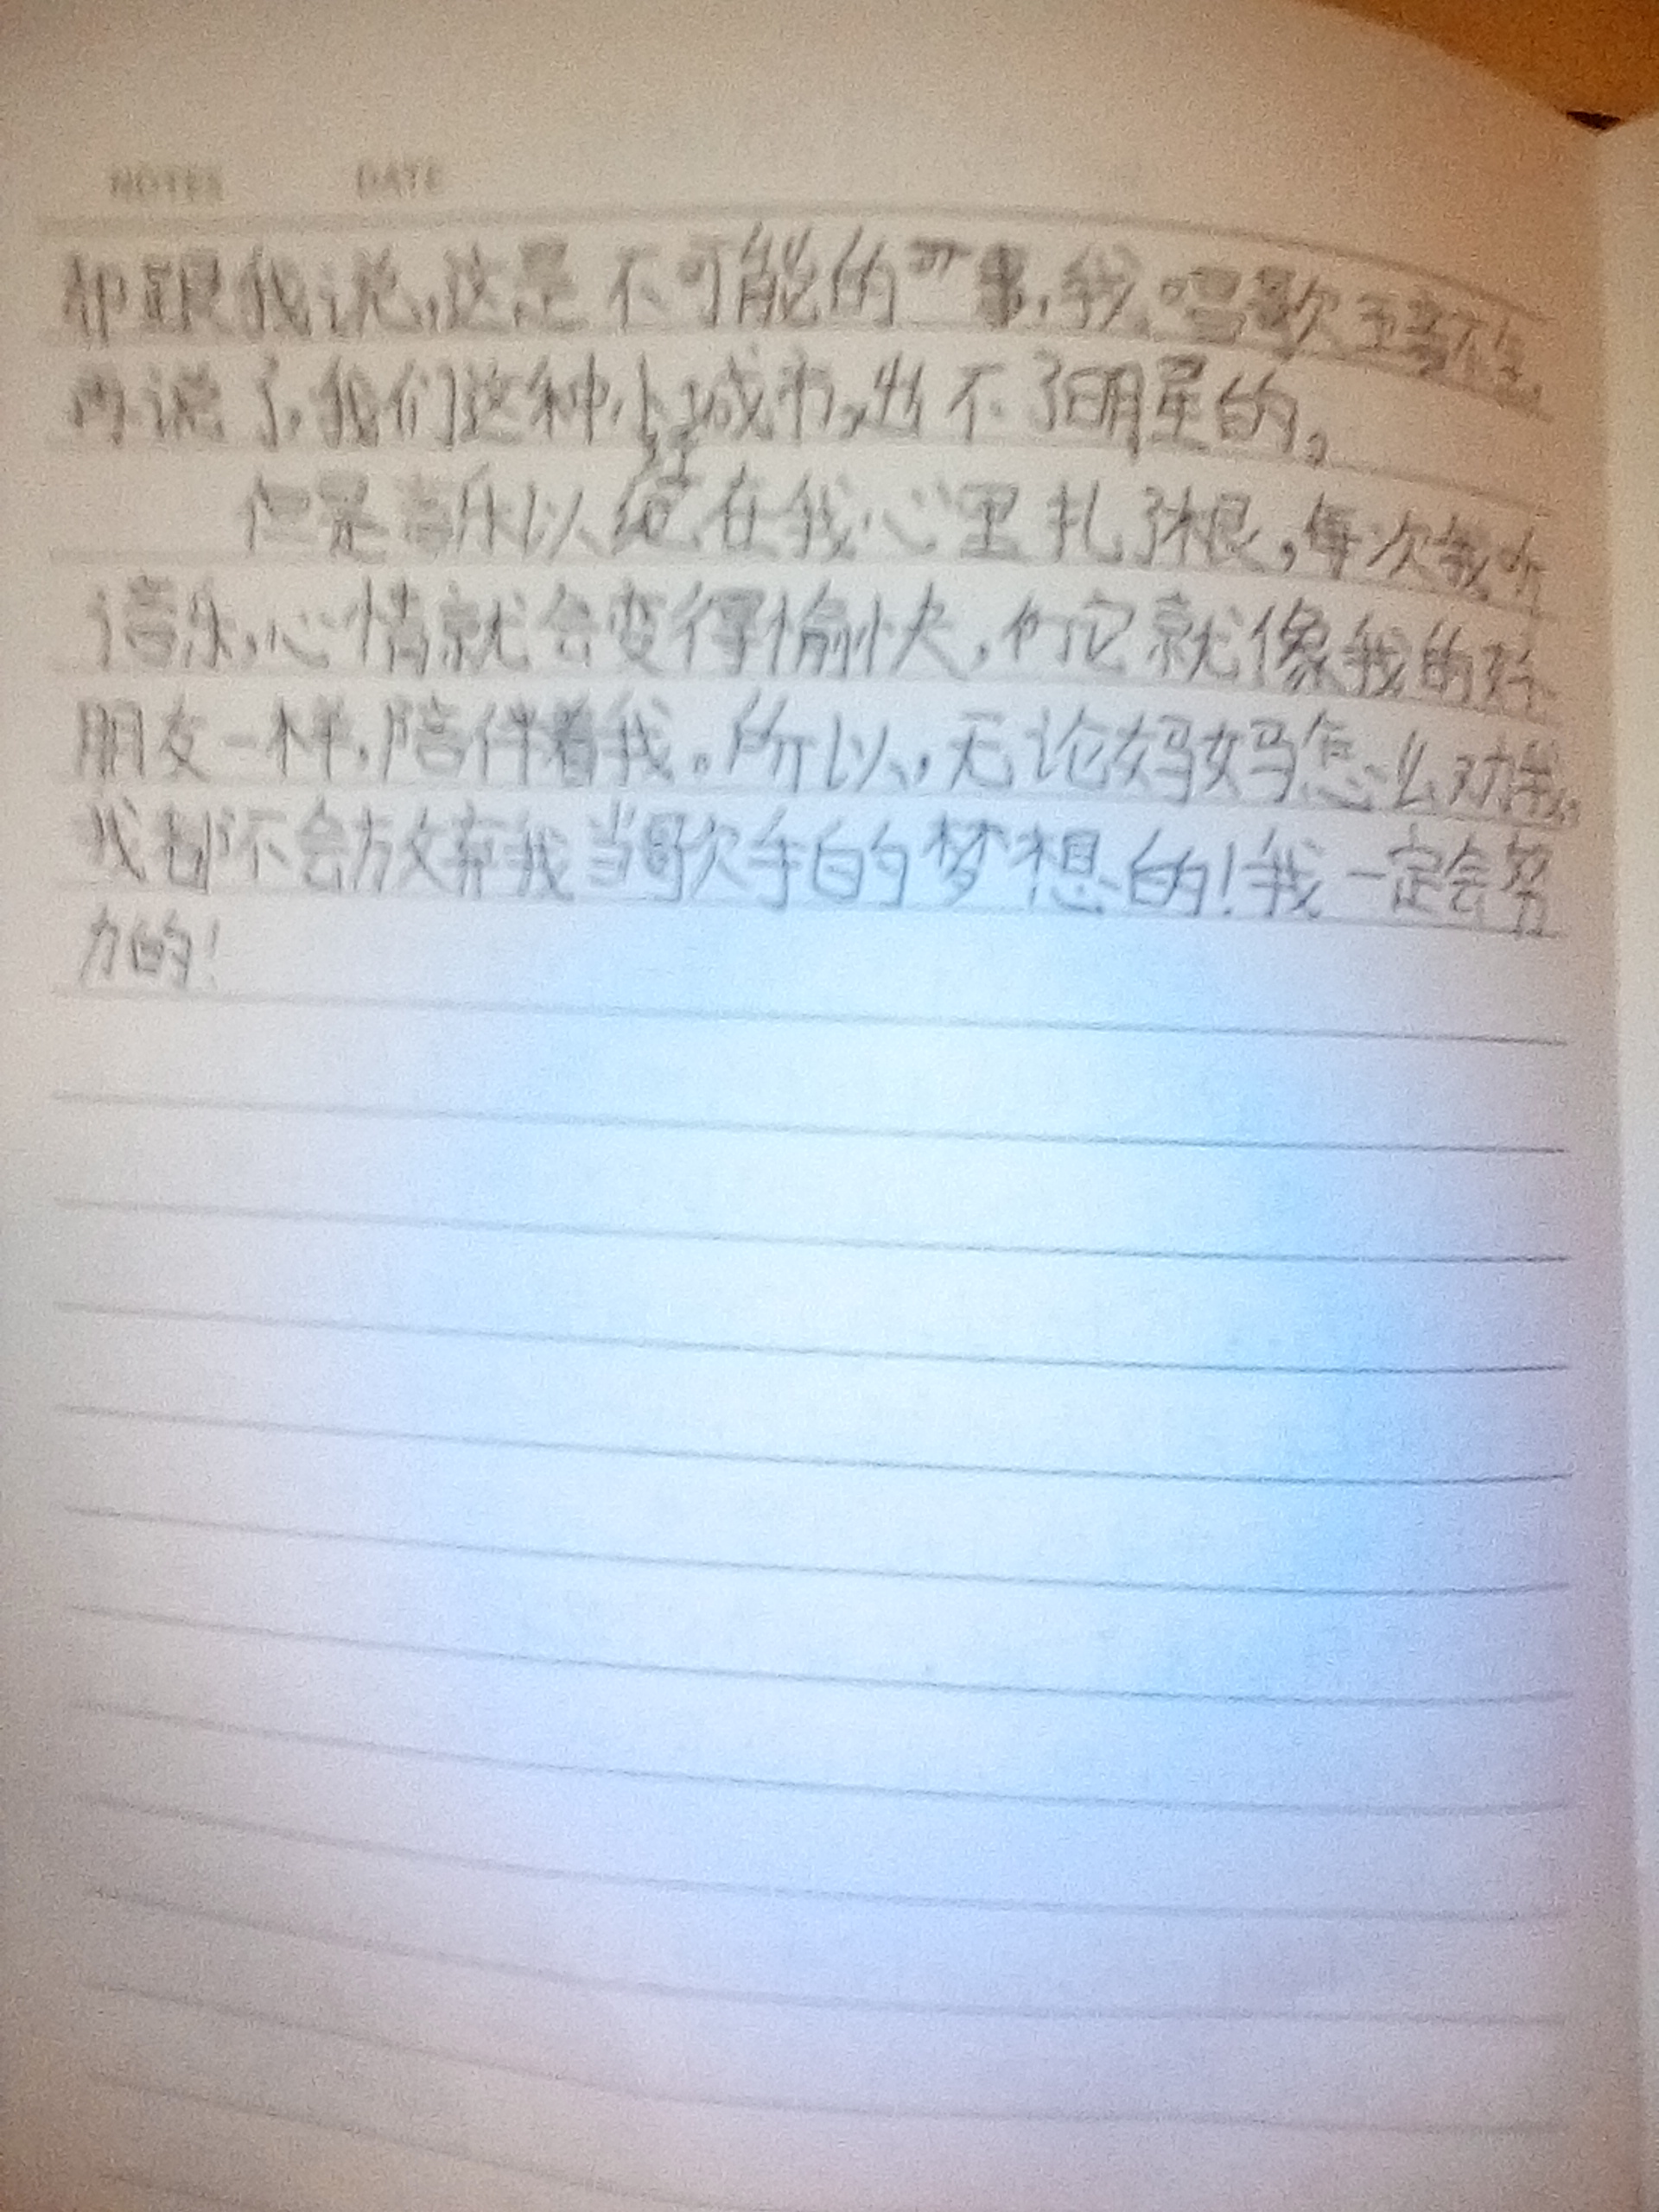 NOTES DATE
都跟我说,这是不可能的事,我唱歌五音不全,
再说了,我们这种小城市,出不了明星的。
但是音乐以经在我心里扎了根,每次我听
音乐,心情就会变得愉快,它就像我的好
朋友一样,陪伴着我。所以,无论妈妈怎么对我,
我都不会放弃我当歌手的梦想的!我一定会努
力的!